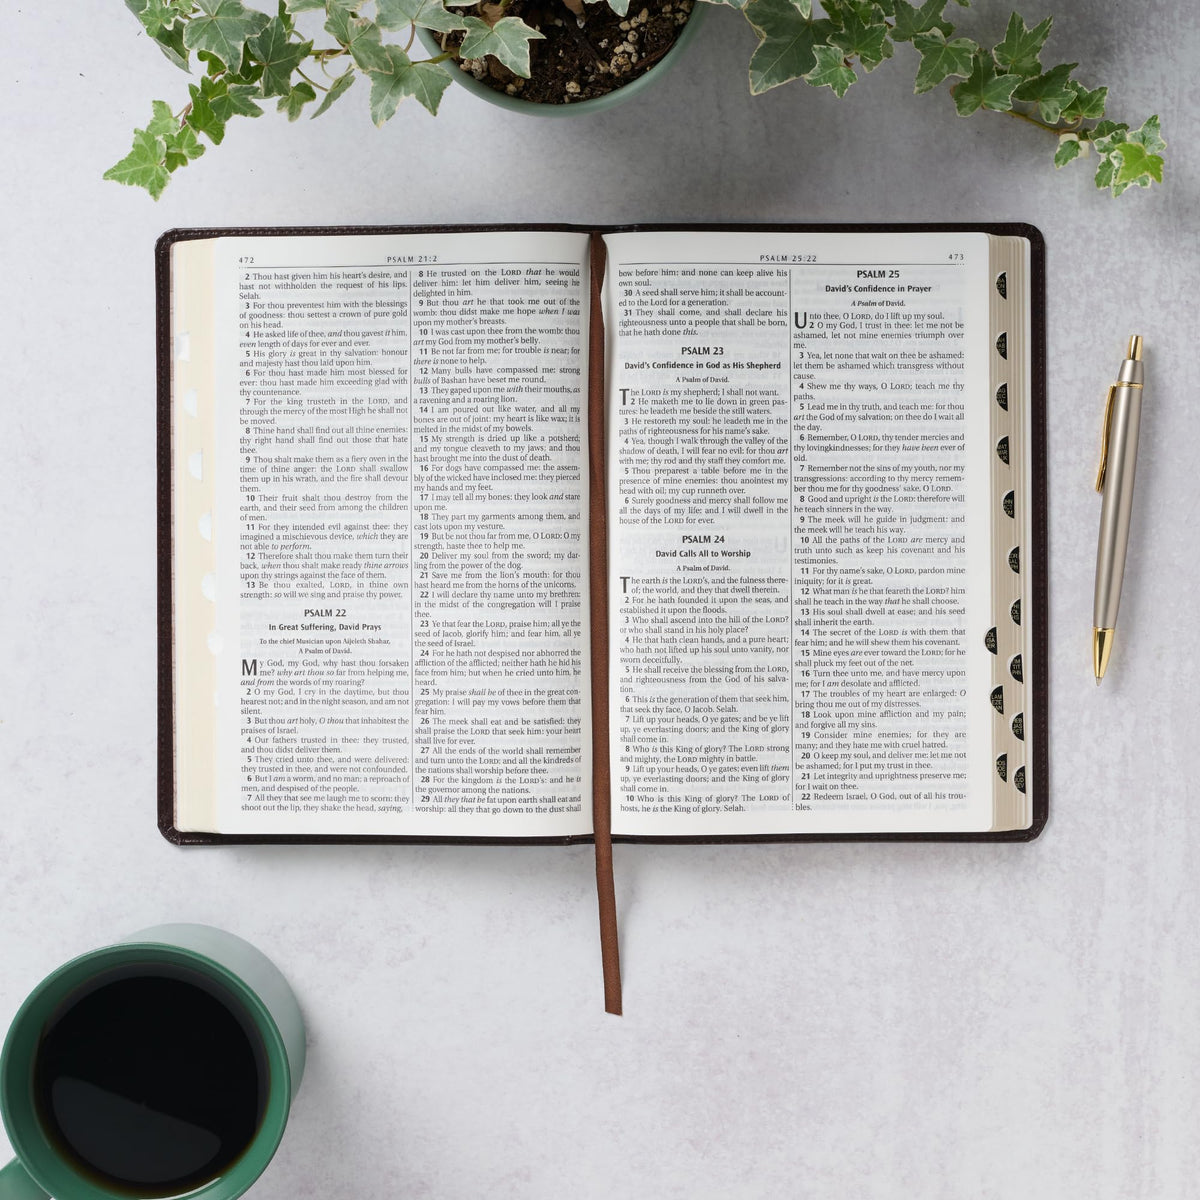 472
PSALM 21:2
2 Thou hast given him his heart's desire, and
hast not withholden the request of his lips.
Selah.
3 For thou preventest him with the blessings
of goodness: thou settest a crown of pure gold
on his head.
4 He asked life of thee, and thou gavest it him,
even length of days for ever and ever.
5 His glory is great in thy salvation: honour
and majesty hast thou laid upon him.
6 For thou hast made him most blessed for
ever: thou hast made him exceeding glad with
thy countenance.
7 For the king trusteth in the LORD, and
through the mercy of the most High he shall not
be moved.
8 Thine hand shall find out all thine enemies:
thy right hand shall find out those that hate
thee.
9 Thou shalt make them as a fiery oven in the
time of thine anger: the LORD shall swallow
them up in his wrath, and the fire shall devour
them.
10 Their fruit shalt thou destroy from the
earth, and their seed from among the children
of men.
11 For they intended evil against thee: they
imagined a mischievous device, which they are
not able to perform.
12 Therefore shalt thou make them turn their
back, when thou shalt make ready thine arrows
upon thy strings against the face of them.
13 Be thou exalted, LORD, in thine own
strength: so will we sing and praise thy power.
PSALM 22
In Great Suffering, David Prays
To the chief Musician upon Aijeleth Shahar,
A Psalm of David.
My God, my God, why hast thou forsaken
me? why art thou so far from helping me,
and from the words of my roaring?
2 O my God, I cry in the daytime, but thou
hearest not; and in the night season, and am not
silent.
3 But thou art holy, O thou that inhabitest the
praises of Israel.
4 Our fathers trusted in thee: they trusted,
and thou didst deliver them.
5 They cried unto thee, and were delivered:
they trusted in thee, and were not confounded.
6 But I am a worm, and no man; a reproach of
men, and despised of the people.
7 All they that see me laugh me to scorn: they
shoot out the lip, they shake the head, saying,
8 He trusted on the LORD that he would
deliver him: let him deliver him, seeing he
delighted in him.
9 But thou art he that took me out of the
womb: thou didst make me hope when I was
upon my mother's breasts.
10 I was cast upon thee from the womb: thou
art my God from my mother's belly.
11 Be not far from me; for trouble is near; for
there is none to help.
12 Many bulls have compassed me: strong
bulls of Bashan have beset me round.
13 They gaped upon me with their mouths, as
a ravening and a roaring lion.
14 I am poured out like water, and all my
bones are out of joint: my heart is like wax; it is
melted in the midst of my bowels.
15 My strength is dried up like a potsherd;
and my tongue cleaveth to my jaws; and thou
hast brought me into the dust of death.
16 For dogs have compassed me: the assem-
bly of the wicked have inclosed me: they pierced
my hands and my feet.
17 I may tell all my bones: they look and stare
upon me.
18 They part my garments among them, and
cast lots upon my vesture.
19 But be not thou far from me, O LORD: O my
strength, haste thee to help me.
20 Deliver my soul from the sword; my dar-
ling from the power of the dog.
21 Save me from the lion's mouth: for thou
hast heard me from the horns of the unicorns.
22 I will declare thy name unto my brethren:
in the midst of the congregation will I praise
thee.
23 Ye that fear the LORD, praise him; all ye the
seed of Jacob, glorify him; and fear him, all ye
the seed of Israel.
24 For he hath not despised nor abhorred the
affliction of the afflicted; neither hath he hid his
face from him; but when he cried unto him, he
heard.
25 My praise shall be of thee in the great con-
gregation: I will pay my vows before them that
fear him.
26 The meek shall eat and be satisfied: they
shall praise the LORD that seek him: your heart
shall live for ever.
27 All the ends of the world shall remember
and turn unto the LORD: and all the kindreds of
the nations shall worship before thee.
28 For the kingdom is the LORD's: and he is
the governor among the nations.
29 All they that be fat upon earth shall eat and
worship: all they that go down to the dust shall
PSALM 25:22
473
bow before him: and none can keep alive his
own soul.
30 A seed shall serve him; it shall be account-
ed to the Lord for a generation.
31 They shall come, and shall declare his
righteousness unto a people that shall be born,
that he hath done this.
PSALM 23
David's Confidence in God as His Shepherd
A Psalm of David.
The LORD is my shepherd; I shall not want.
2 He maketh me to lie down in green pas-
tures: he leadeth me beside the still waters.
3 He restoreth my soul: he leadeth me in the
paths of righteousness for his name's sake.
4 Yea, though I walk through the valley of the
shadow of death, I will fear no evil: for thou art
with me; thy rod and thy staff they comfort me.
5 Thou preparest a table before me in the
presence of mine enemies: thou anointest my
head with oil; my cup runneth over.
6 Surely goodness and mercy shall follow me
all the days of my life: and I will dwell in the
house of the LORD for ever.
PSALM 24
David Calls All to Worship
A Psalm of David.
The earth is the LORD's, and the fulness there-
of; the world, and they that dwell therein.
2 For he hath founded it upon the seas, and
established it upon the floods.
3 Who shall ascend into the hill of the LORD?
or who shall stand in his holy place?
4 He that hath clean hands, and a pure heart;
who hath not lifted up his soul unto vanity, nor
sworn deceitfully.
5 He shall receive the blessing from the LORD,
and righteousness from the God of his salva-
tion.
6 This is the generation of them that seek him,
that seek thy face, O Jacob. Selah.
7 Lift up your heads, O ye gates; and be ye lift
up, ye everlasting doors; and the King of glory
shall come in.
8 Who is this King of glory? The LORD strong
and mighty, the LORD mighty in battle.
9 Lift up your heads, O ye gates; even lift them
up, ye everlasting doors; and the King of glory
shall come in.
10 Who is this King of glory? The LORD of
hosts, he is the King of glory. Selah.
PSALM 25
David's Confidence in Prayer
A Psalm of David.
Unto thee, O LORD, do I lift up my soul.
2 O my God, I trust in thee: let me not be
ashamed, let not mine enemies triumph over
me.
3 Yea, let none that wait on thee be ashamed:
let them be ashamed which transgress without
cause.
4 Shew me thy ways, O LORD; teach me thy
paths.
5 Lead me in thy truth, and teach me: for thou
art the God of my salvation; on thee do I wait all
the day.
6 Remember, O LORD, thy tender mercies and
thy lovingkindnesses; for they have been ever of
old.
7 Remember not the sins of my youth, nor my
transgressions: according to thy mercy remem-
ber thou me for thy goodness' sake, O LORD.
8 Good and upright is the LORD: therefore will
he teach sinners in the way.
9 The meek will he guide in judgment: and
the meek will he teach his way.
10 All the paths of the LORD are mercy and
truth unto such as keep his covenant and his
testimonies.
11 For thy name's sake, O LORD, pardon mine
iniquity; for it is great.
12 What man is he that feareth the LORD? him
shall he teach in the way that he shall choose.
13 His soul shall dwell at ease; and his seed
shall inherit the earth.
14 The secret of the LORD is with them that
fear him; and he will shew them his covenant.
15 Mine eyes are ever toward the LORD; for he
shall pluck my feet out of the net.
16 Turn thee unto me, and have mercy upon
me; for I am desolate and afflicted.
17 The troubles of my heart are enlarged: O
bring thou me out of my distresses.
18 Look upon mine affliction and my pain;
and forgive all my sins.
19 Consider mine enemies; for they are
many; and they hate me with cruel hatred.
20 O keep my soul, and deliver me: let me not
be ashamed; for I put my trust in thee.
21 Let integrity and uprightness preserve me;
for I wait on thee.
22 Redeem Israel, O God, out of all his trou-
bles.